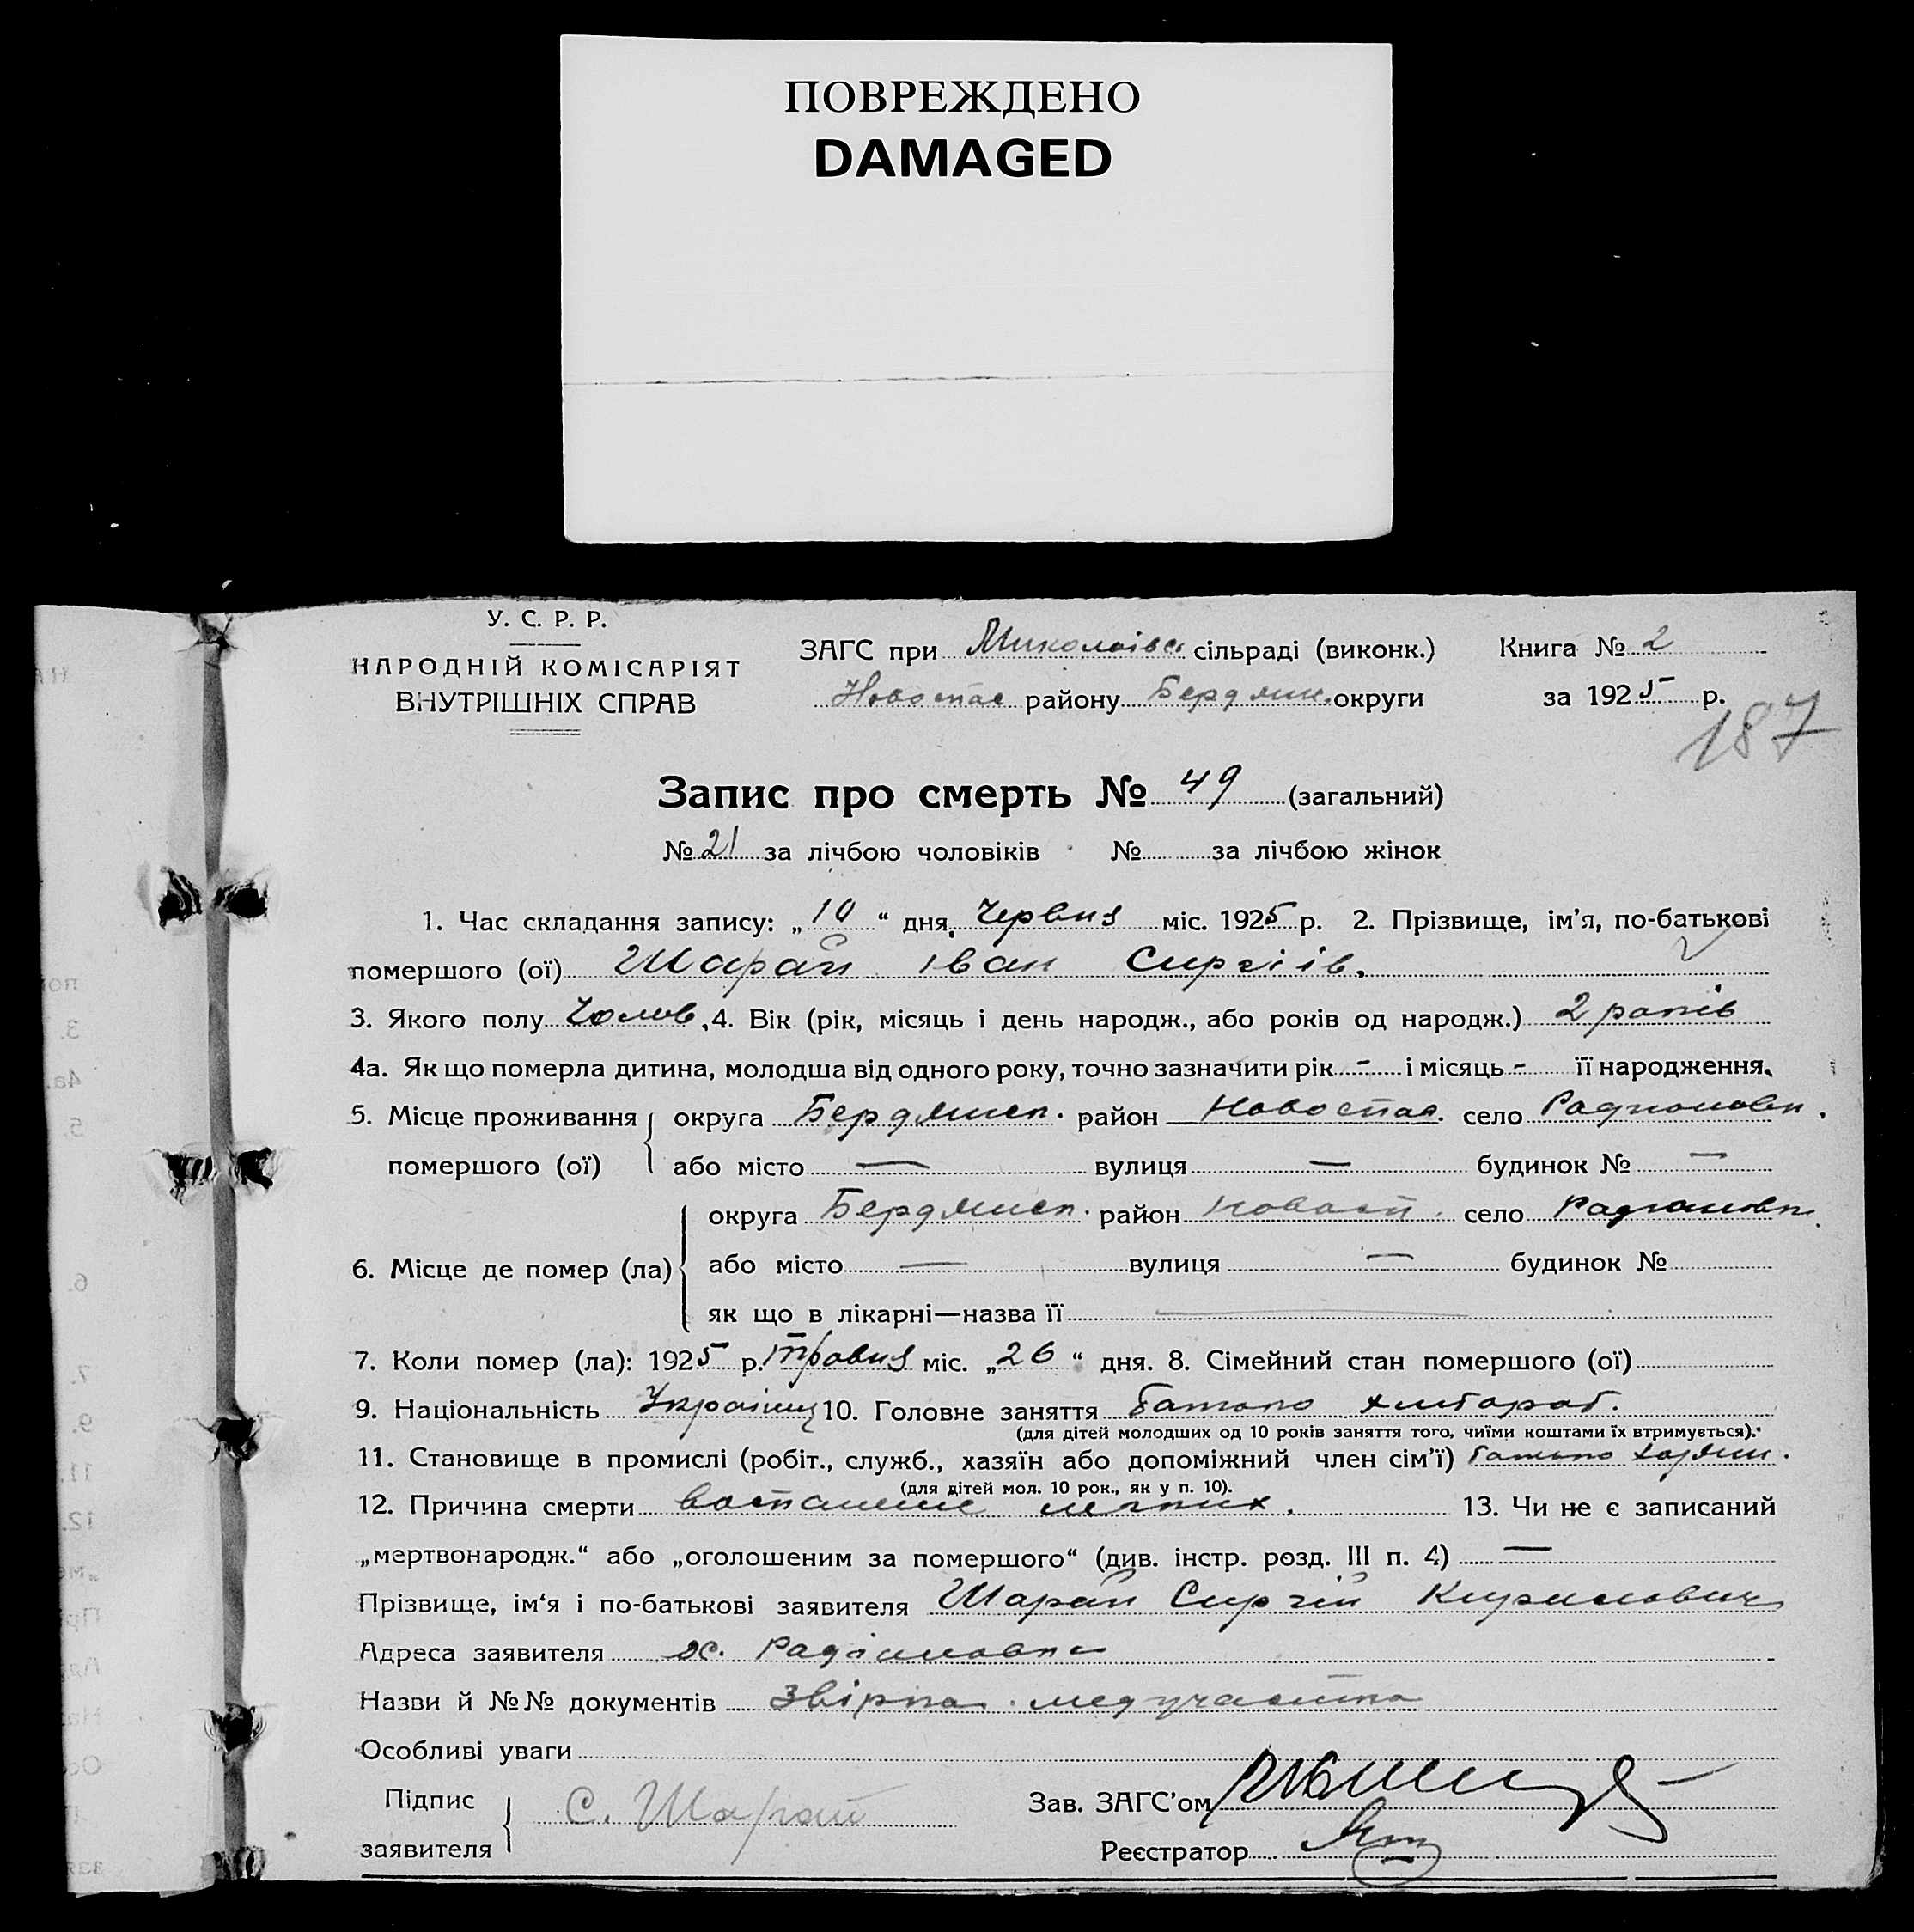 ПОВРЕЖДЕНО
DAMAGED
У. С. Р. Р.
НАРОДНІЙ КОМІСАРІЯТ
ВНУТРІШНІХ СПРАВ
ЗАГС при Миколаівс сільраді (виконк.)
Новоспас району Бердянс. округи
Книга № 2
за 1925 р.
187
Запис про смерть № 49 (загальний)
№ 21 за лічбою чоловіків № за лічбою жінок
1. Час складання запису: „10“ дня, Червня міс. 1925 р. 2. Прізвище, ім’я, по-батькові
помершого (ої) Шарай Іван Сиргіів.
3. Якого полу Чолов. 4. Вік (рік, місяць і день народж., або років од народж.) 2 років
4а. Як що померла дитина, молодша від одного року, точно зазначити рік - і місяць - її народження.
5. Місце проживання округа Бердянск. район Новоспас. село Радионовк.
помершого (ої) або місто — вулиця — будинок № —
округа Бердянск. район Новосп. село Радионовк.
6. Місце де помер (ла) або місто — вулиця — будинок №
як що в лікарні—назва її —
7. Коли помер (ла): 1925 р. Травня міс. „26“ дня. 8. Сімейний стан помершого (ої)
9. Національність Украінец 10. Головне заняття батько хлібороб.
(для дітей молодших од 10 років заняття того, чиїми коштами їх втримується).
11. Становище в промислі (робіт., служб., хазяїн або допоміжний член сім’ї) батько хазяин.
(для дітей мол. 10 рок., як у п. 10).
12. Причина смерти воспаление легких. 13. Чи не є записаний
„мертвонародж.“ або „оголошеним за помершого“ (див. інстр. розд. III п. 4) —
Прізвище, ім‘я і по-батькові заявителя Шарай Сиргій Кирилович
Адреса заявителя с. Радіоновка
Назви й №№ документів Звірка медучастка
Особливі уваги
Підпис
заявителя С. Шарай
Зав. ЗАГС’ом
Реєстратор